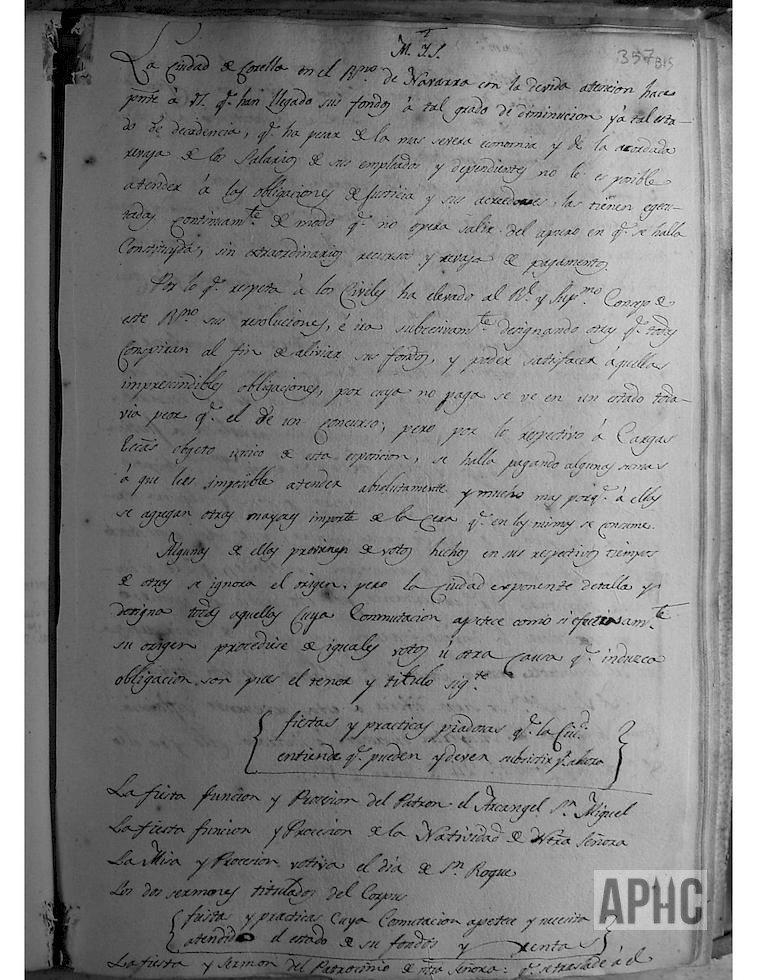 M. Y. S.
357 BIS
La Ciudad de Corella en el R.no de Navarra con la devida atencion hace
pnte á V.I. q.e han llegado sus fondos á tal grado de diminucion y á tal esta-
do de decadencia, q.e ha pesar de la mas severa economia y de la acordada
revaja de los Salarios de sus empleados y dependientes no le es posible
atender á las obligaciones de Justicia y sus acredores las tienen egecu-
tadas continuam.te de modo q.e no espera salir del apuro en q.e se halla
Constituyda, sin extraordinarios recursos y revaja de pagamentos.
Por lo q.e respeta á los Civiles ha elevado al R.l y Sup.mo Consejo de
este R.no sus resoluciones, é ira subcesivam.te designando otras q.e todas
Conspiran al fin de aliviar sus fondos, y poder satisfacer aquellas
imprescindibles obligaciones, por cuya no paga se ve en un estado toda-
via peor q.e el de un concurso; pero por lo respectivo á Cargas
Eccas objeto unico de esta exposicion, se halla pagando algunas sumas
á que le es imposible atender absolutamente y mucho mas porq.e á ellas
se agregan otras mayores importe de la Cera q.e en los mismos se consume.
Algunas de ellas provienen de votos hechos en sus respectivos tiempos
de otras se ignora el origen, pero la Ciudad exponente detalla y
designa todas aquellas Cuya Conmutacion apetece como si efectivam.te
su origen procediese de iguales votos ú otra Causa q.e induzca
obligacion son pues el tenor y titulo sig.te
fiestas y practicas piadosas q.e la Ciud.
entiende q.e pueden y deven subsistir p.r ahora
La fiesta funcion y Procesion del Patron el Arcangel S.n Miguel
La fiesta funcion y Procesion de la Natividad de Ntra Señora
La Misa y Procesion votiva el dia de S.n Roque
Los dos sermones titulados del Corpus
fiestas y practicas Cuya Conmutacion apetece y necesita
atendido el estado de sus fondos y rentas
La fiesta y Sermon del Patrocinio de ntra Señora: q.e se traslade á el
APHC